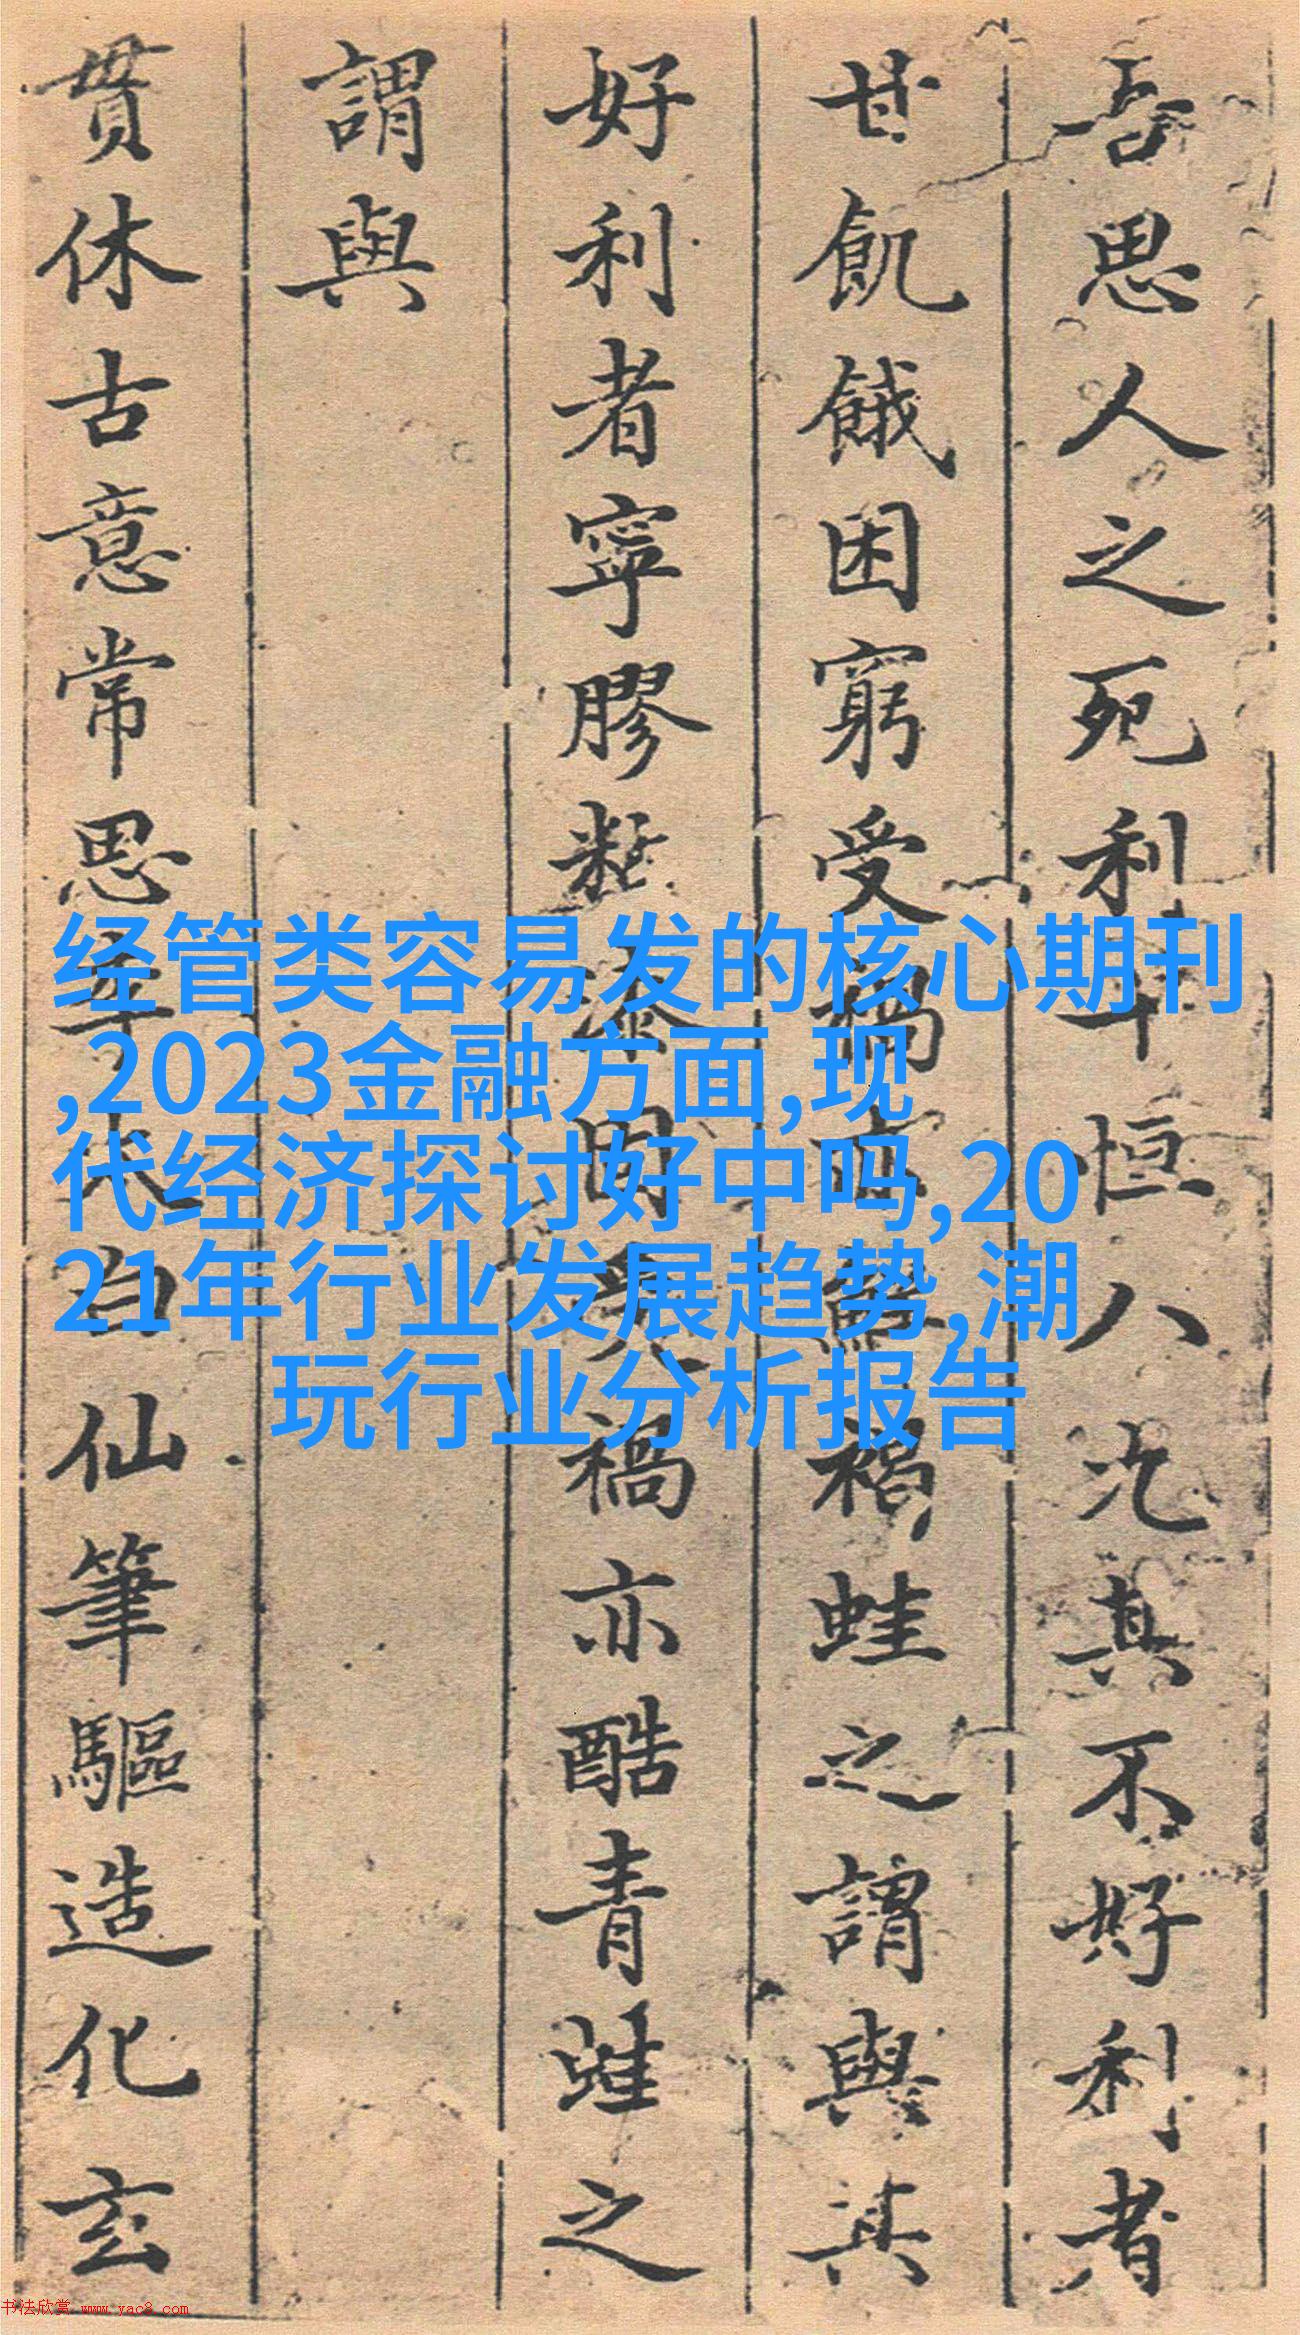 吾思人之死利十恒八其不好利者
甘飢餓困窮受禍亦鮮禍蛙之謂與其
好利者寧膠黏漆固受禍亦酷青蛙之
謂與
貫休古意常思李太白仙筆驅造化玄
经管类容易发的核心期刊
,2023金融方面,现
代经济探讨好中吗,20
21年行业发展趋势,潮
玩行业分析报告
书法欣赏 www.yac8.com